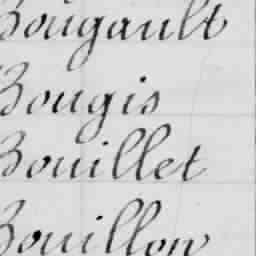 Bougault
Bougis
Bouillet
Bouillon